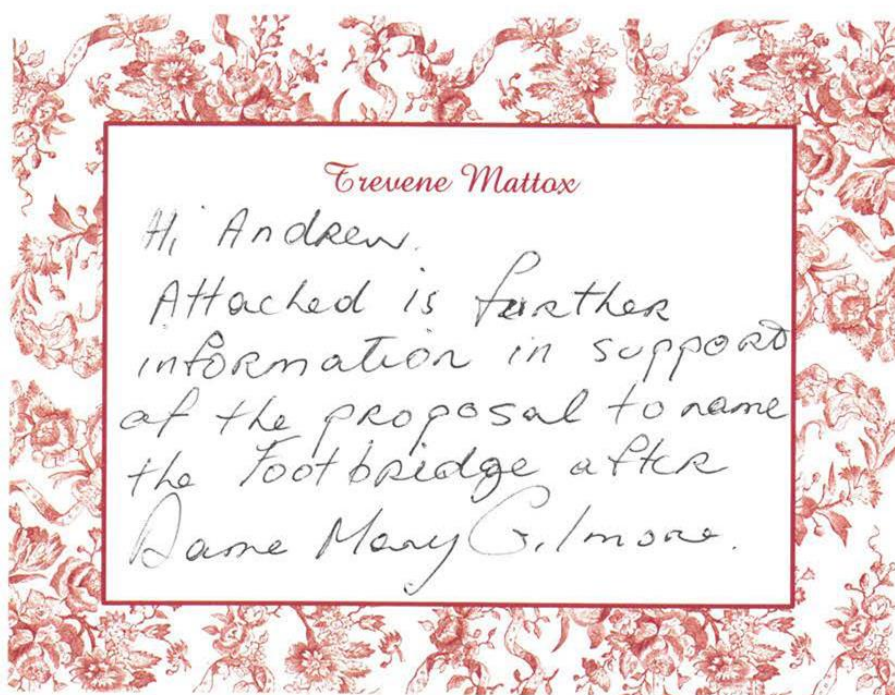 Trevene Mattox
Hi Andrew.
Attached is further
information in support
of the proposal to name
the Footbridge after
Dame Mary Gilmore.